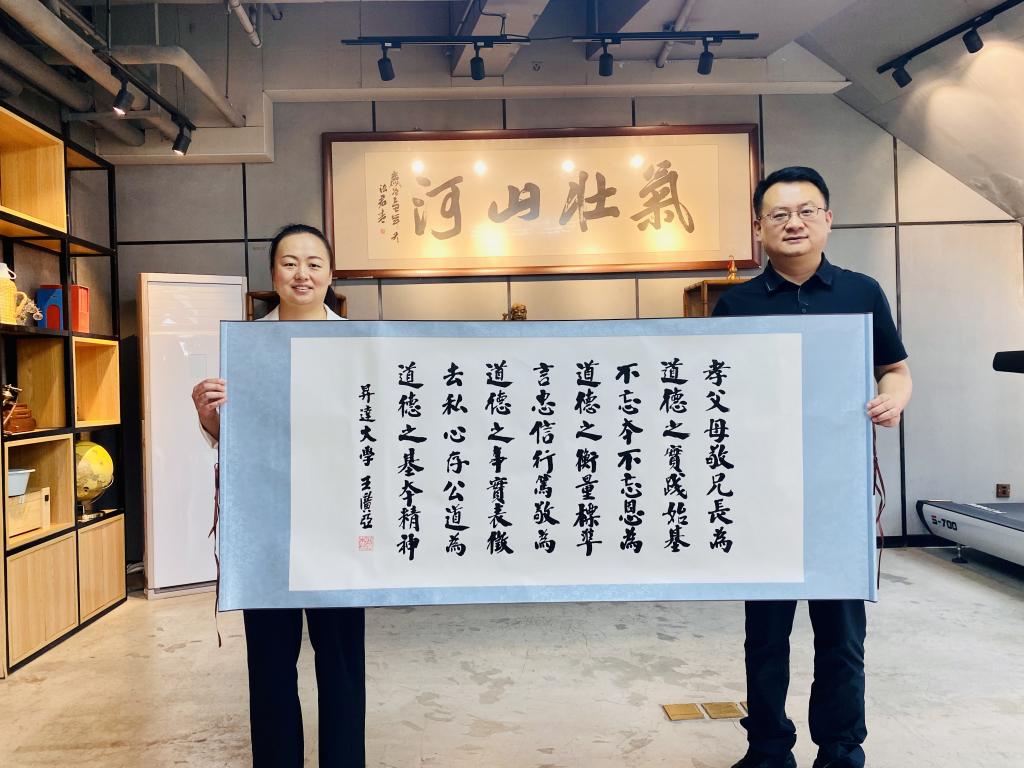 氣壯山河
孝父母敬兄長為
道德之實踐始基
不忘本不忘恩為
道德之衡量標準
言忠信行篤敬為
道德之事實表徵
去私心存公道為
道德之基本精神
昇達大學 王廣亞
S-700